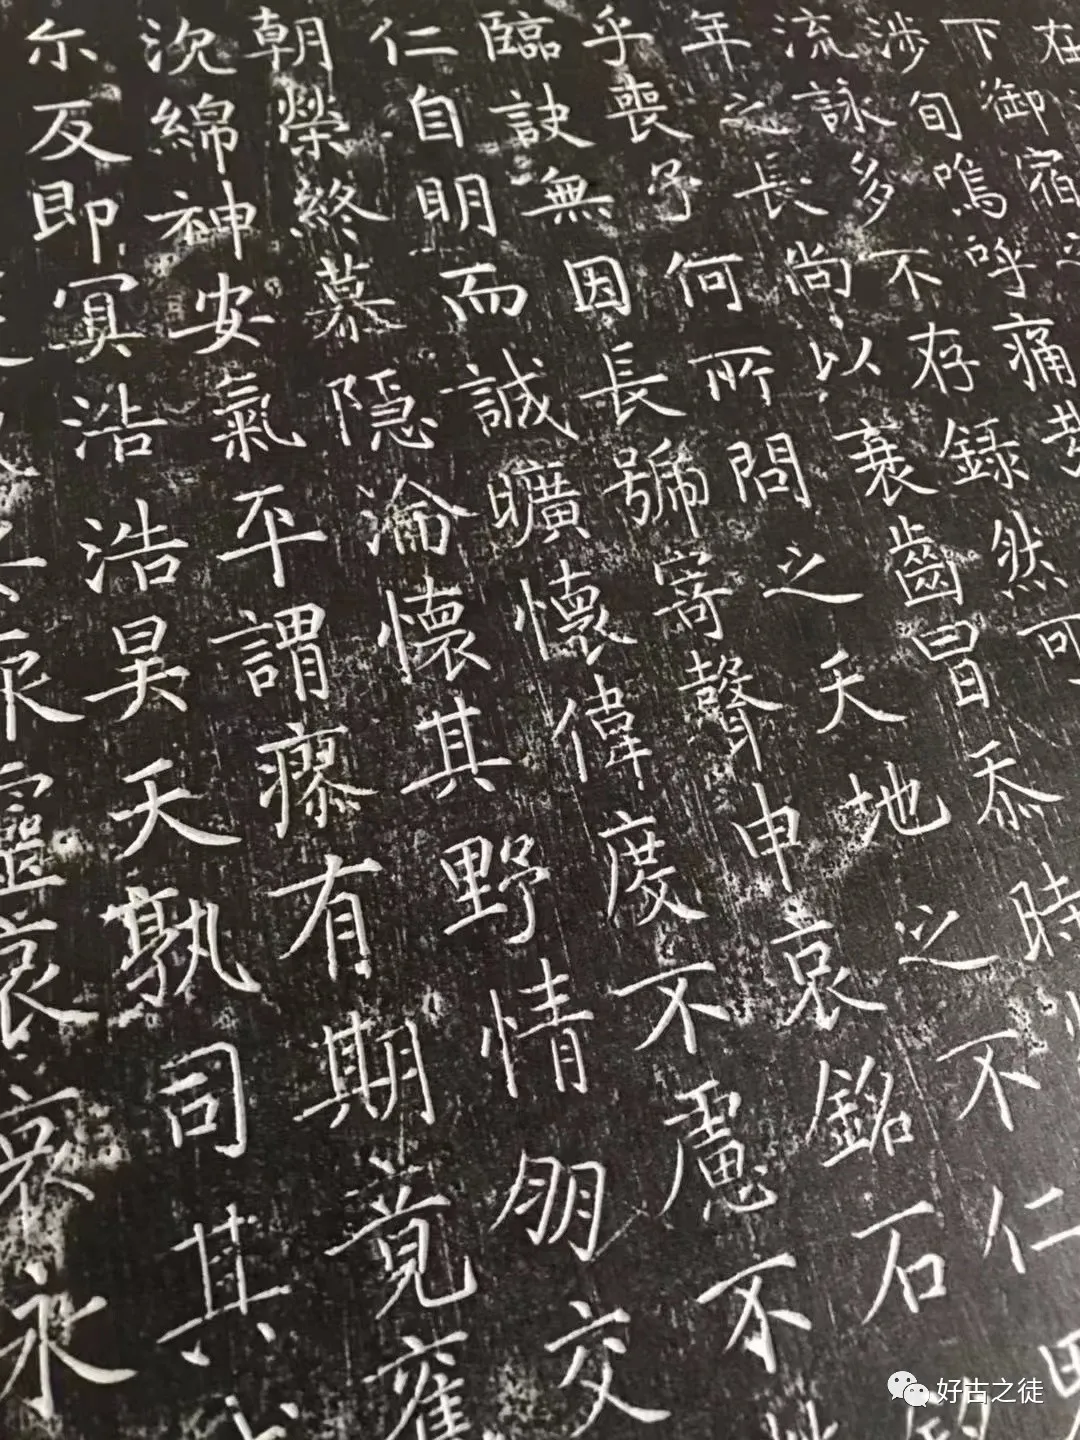 在
下御宿
涉旬嗚呼痛
流詠多不存録然可
年之長尚以衰齒冒忝時
乎喪予何所問之天地之不仁
臨訣無因長號寄聲申哀銘石
仁自明而誠曠懷偉度不慮不
朝榮終慕隠淪懷其野情朋交
沈綿神安氣平謂瘳有期竟
尓反即冥浩浩昊天孰司其
靈哀哀永
好古之徒